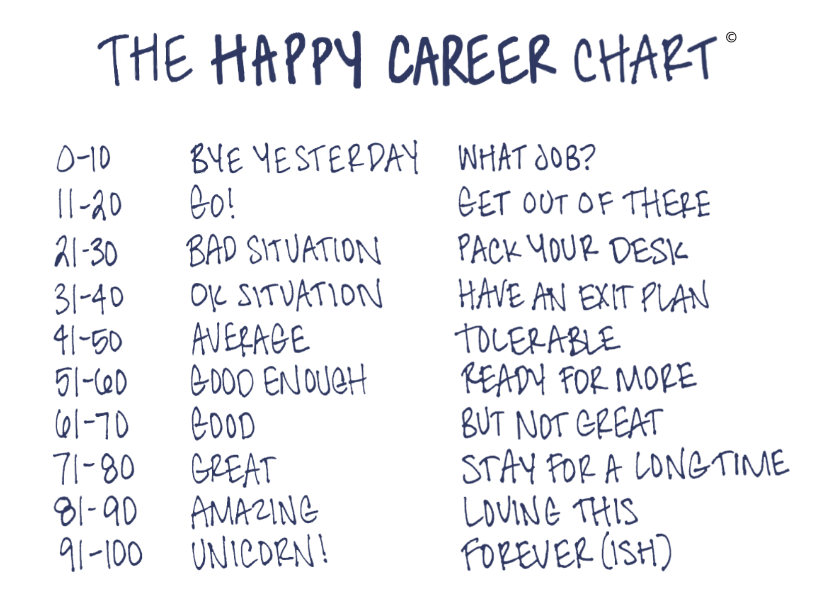 THE HAPPY CAREER CHART ©
0-10 BYE YESTERDAY WHAT JOB?
11-20 GO! GET OUT OF THERE
21-30 BAD SITUATION PACK YOUR DESK
31-40 OK SITUATION HAVE AN EXIT PLAN
41-50 AVERAGE TOLERABLE
51-60 GOOD ENOUGH READY FOR MORE
61-70 GOOD BUT NOT GREAT
71-80 GREAT STAY FOR A LONG TIME
81-90 AMAZING LOVING THIS
91-100 UNICORN! FOREVER (ISH)